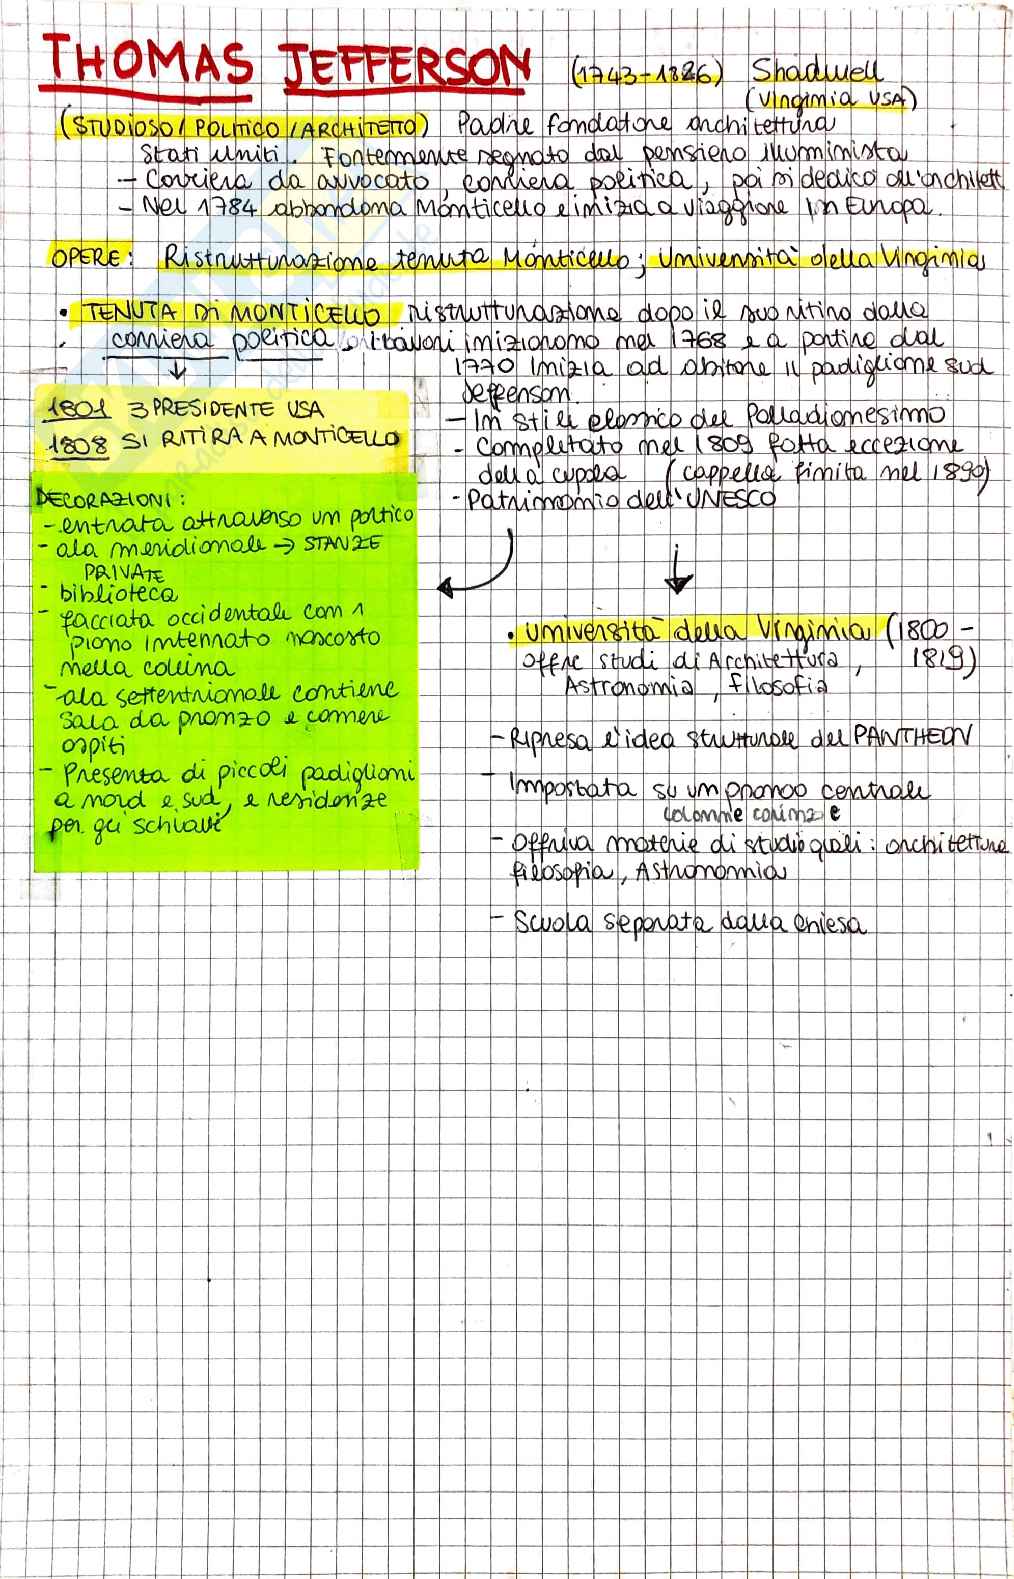 THOMAS JEFFERSON (1743-1826) Shadwell
(Virginia USA)
(STUDIOSO/POLITICO/ARCHITETTO) Padre fondatore architettura
Stati Uniti. Fortemente segnato dal pensiero illuminista
- Carriera da avvocato, carriera politica, poi si dedicò all'architett
- Nel 1784 abbandona Monticello e inizia a viaggiare in Europa.
OPERE: Ristrutturazione tenuta Monticello; Università della Virginia
• TENUTA DI MONTICELLO ristrutturazione dopo il suo ritiro dalla
carriera politica, i lavori iniziarono nel 1768 e a partire dal
1770 inizia ad abitare il padiglione sud
Jefferson.
- In stile classico del Palladianesimo
- Completato nel 1809 fatta eccezione
della cupola (cappella finita nel 1890)
- Patrimonio dell'UNESCO
1801 3 PRESIDENTE USA
1808 SI RITIRA A MONTICELLO
DECORAZIONI:
- entrata attraverso un portico
- ala meridionale → STANZE
PRIVATE
- biblioteca
- facciata occidentale con 1
piano interrato nascosto
nella collina
- ala settentrionale contiene
sala da pranzo e camere
ospiti
- Presenta di piccoli padiglioni
a nord e sud, e residenze
per gli schiavi
• Università della Virginia (1800-
1819)
offre studi di Architettura,
Astronomia, filosofia
- Ripresa l'idea strutturale del PANTHEON
- Impostata su un pronao centrale
colonne corinzie
- Offriva materie di studio quali: architettura
filosofia, Astronomia
- Scuola separata dalla chiesa